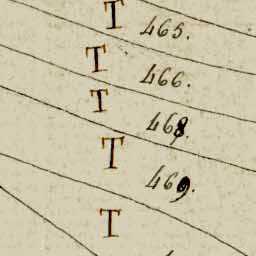 T 465.
T 466.
T
468.
T 469.
T